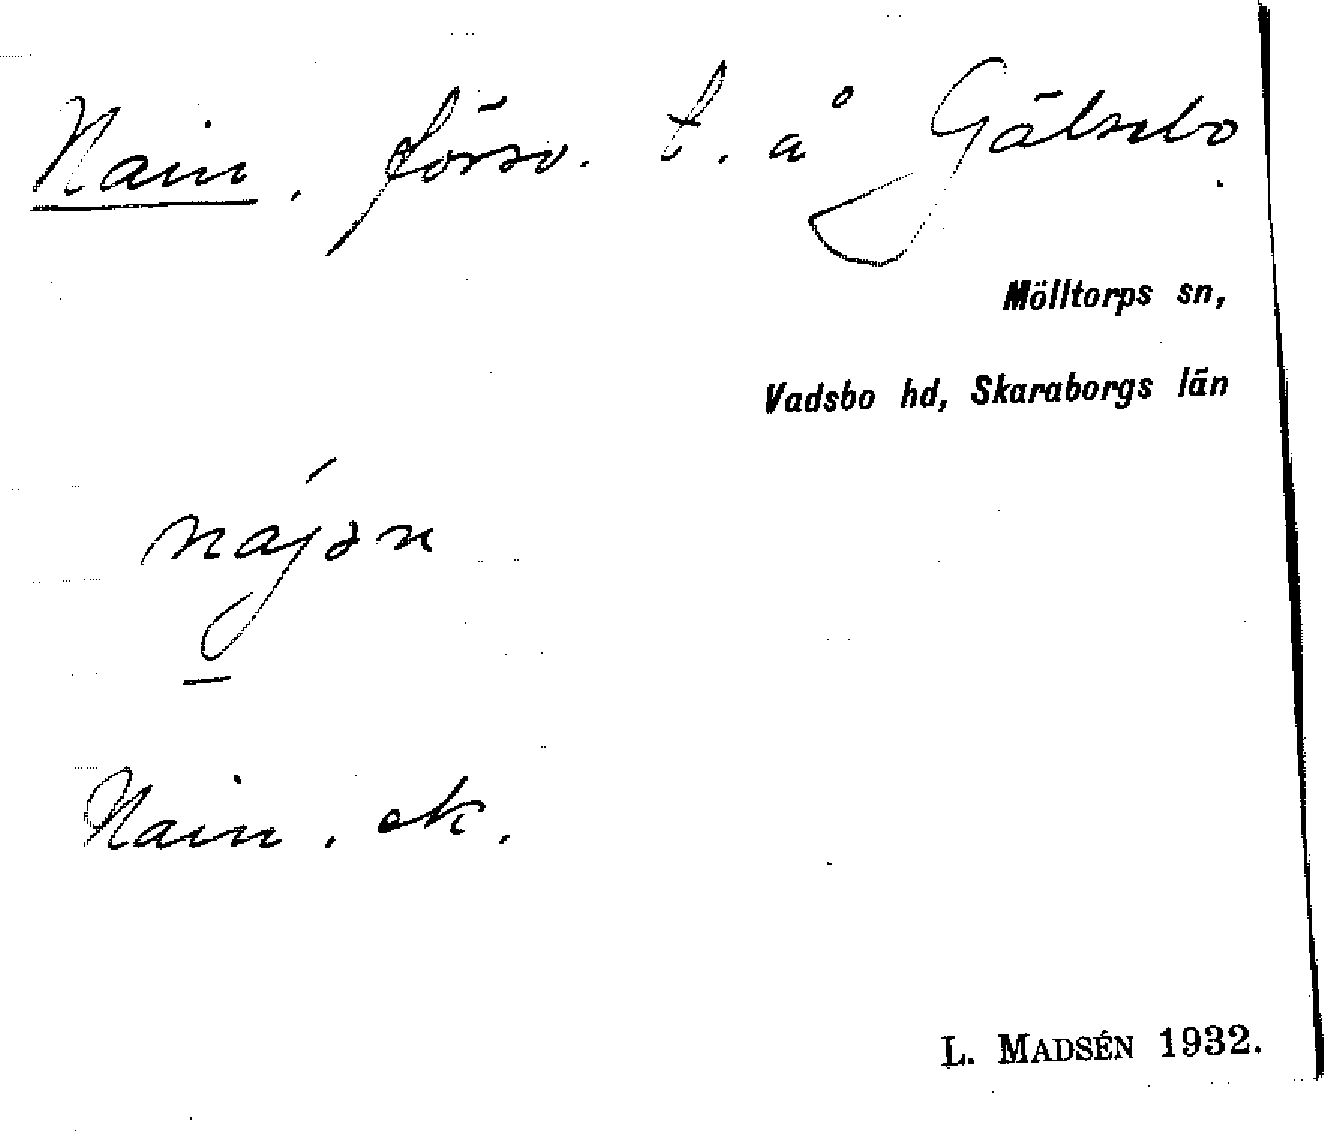 Nain, försv. t. å Gälsebo.
Mölltorps sn,
Vadsbo hd, Skaraborgs län
nájɔn
Nain. ek.
L. MADSÉN 1932.